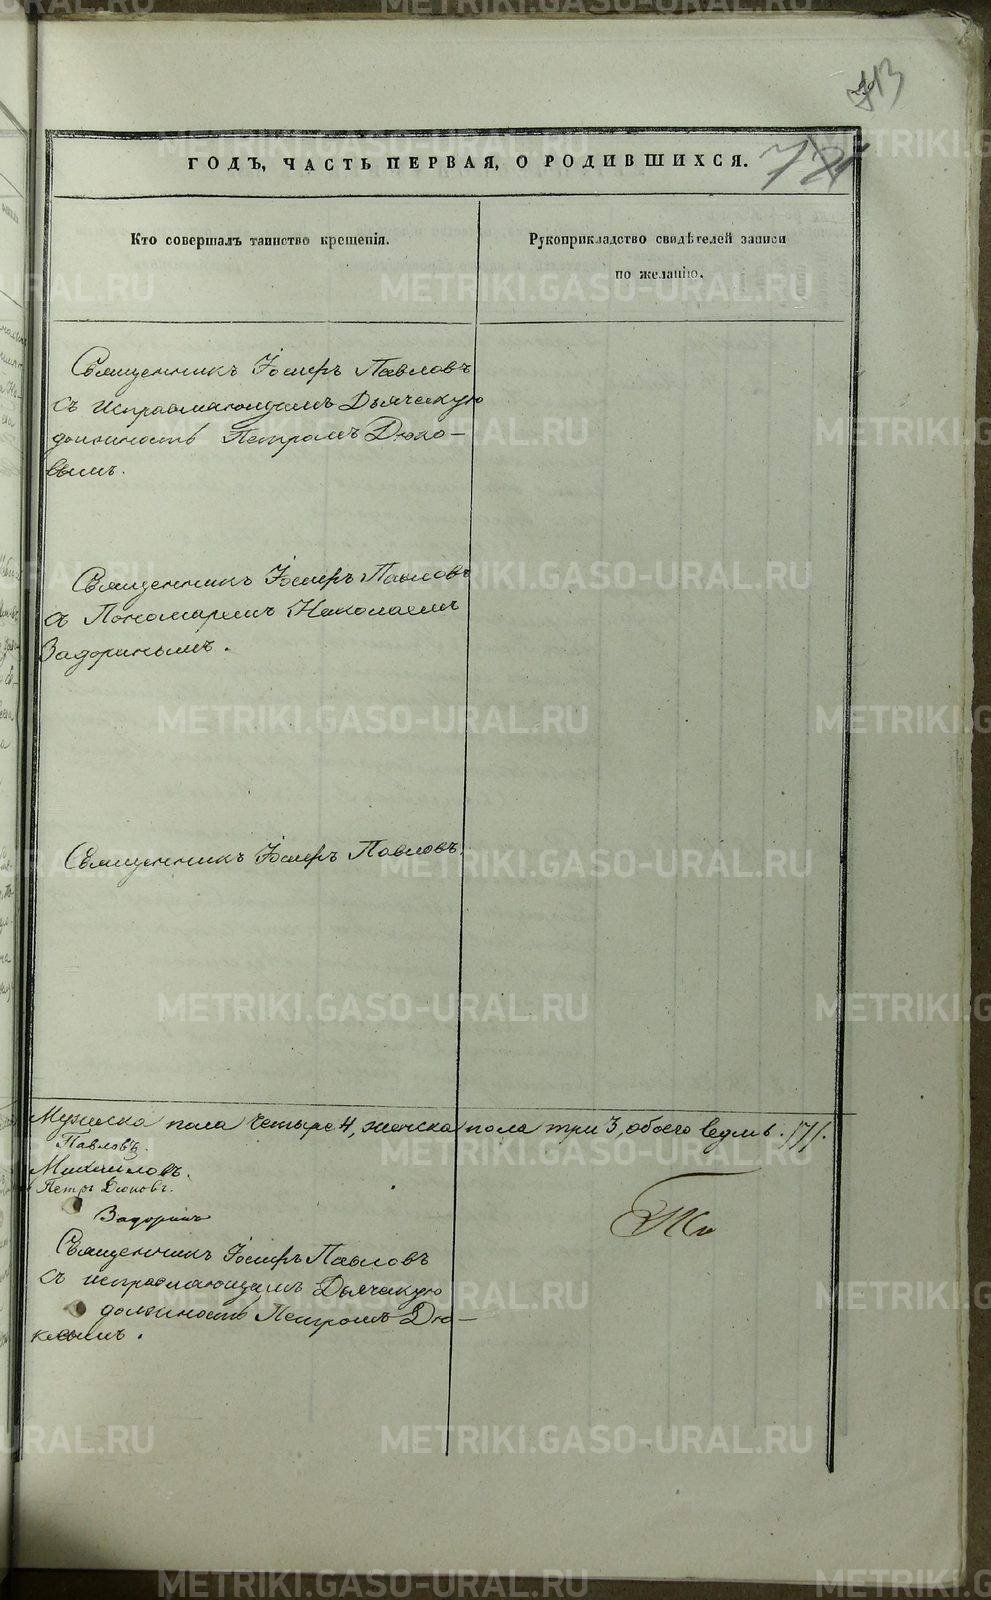 13
ГОДЪ, ЧАСТЬ ПЕРВАЯ, О РОДИВШИХСЯ.
Кто совершалъ таинство крещенія.
Рукоприкладство свидѣтелей записи
по желанію.
Священникъ Іосифъ Павловъ
съ исправляющимъ Дьячскую
должность Петромъ Дюко-
вымъ.
Священникъ Іосифъ Павловъ
съ Пономаремъ Николаемъ
Задоринымъ.
Священникъ Іосифъ Павловъ.
Мужеска пола четыре 4, женска пола три 3, обоего седмь. /7/.
Павловъ.
Михайловъ.
Петръ Дюковъ.
Задоринъ
Священникъ Іосифъ Павловъ
съ исправляющимъ Дьячскую
должность Петромъ Дю-
ковымъ.
METRIKI.GASO-URAL.RU